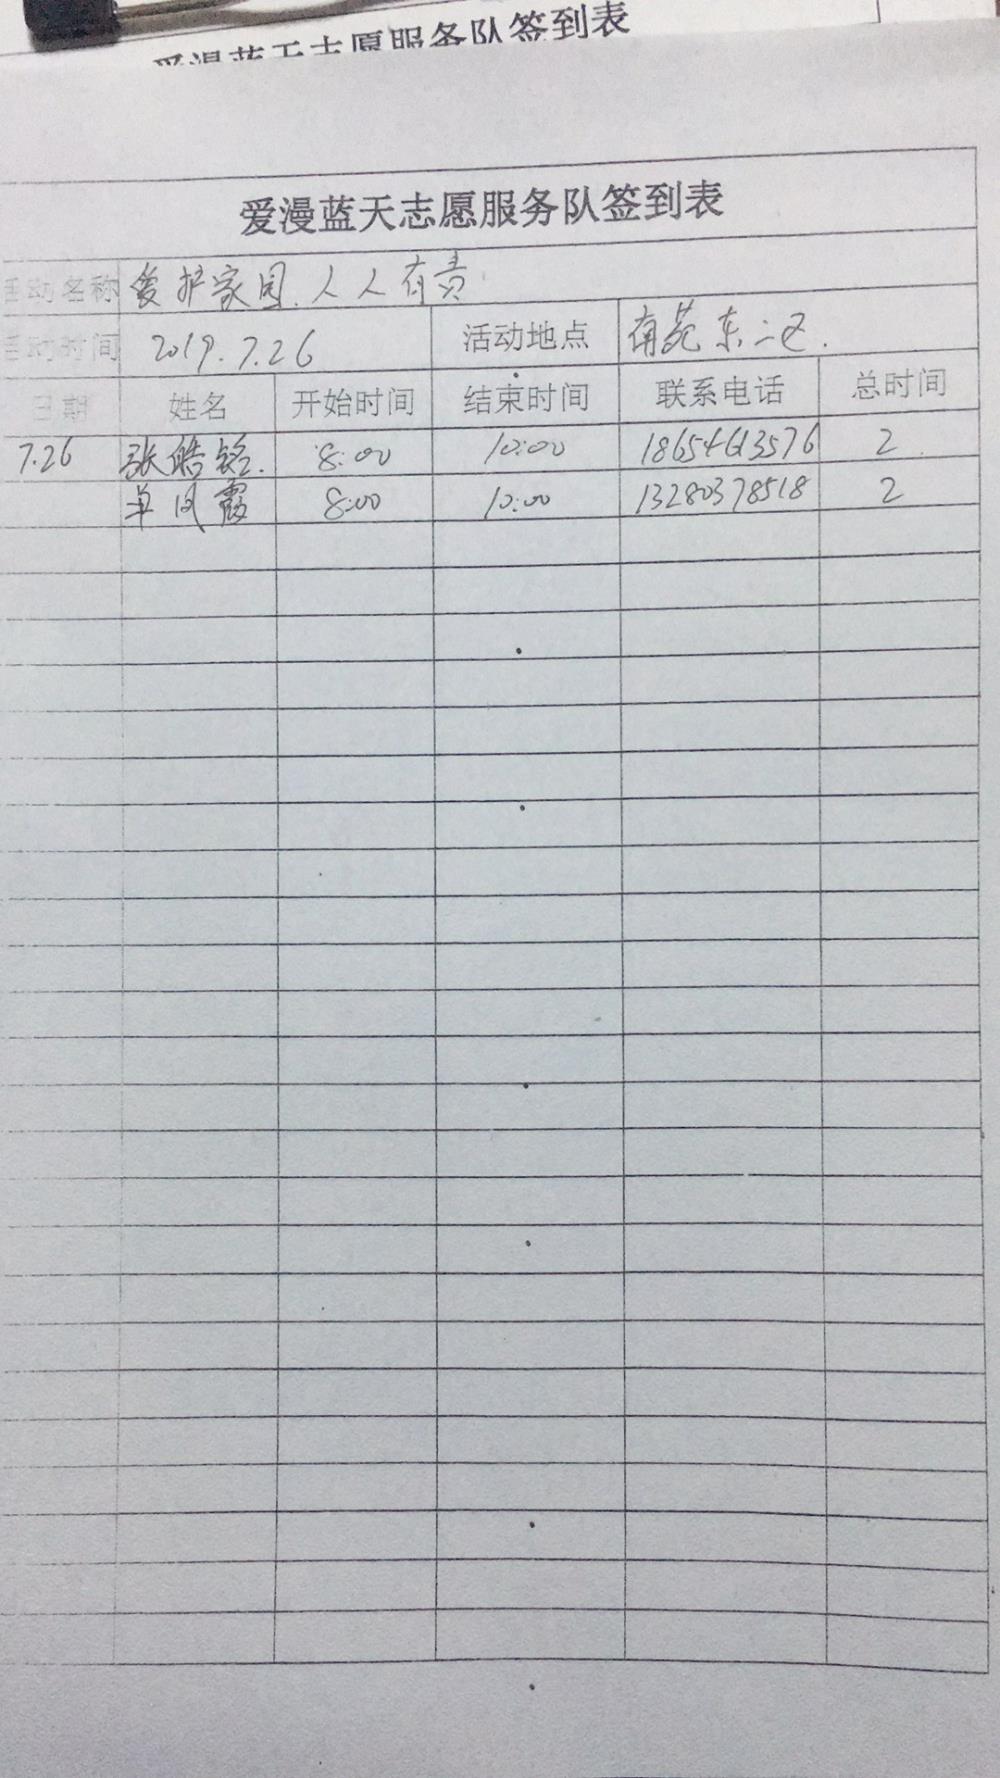 爱漫蓝天志愿服务队签到表
爱漫蓝天志愿服务队签到表
活动名称 爱护家园.人人有责
活动时间 2019.7.26 活动地点 南苑东二区.
日期 姓名 开始时间 结束时间 联系电话 总时间
7.26 张皓铭. 8:00 10:00 18654613576 2
单凤霞 8:00 10:00 13280378518 2